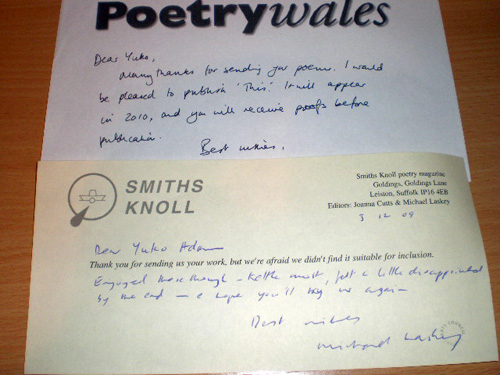 Poetrywales
Dear Yuko,
Many thanks for sending your poems. I would
be pleased to publish 'This'. It will appear
in 2010, and you will receive proofs before
publication.
Best wishes,
SMITHS
KNOLL
Smiths Knoll poetry magazine
Goldings, Goldings Lane
Leiston, Suffolk IP16 4EB
Editors: Joanna Cutts & Michael Laskey
3 12 09
Dear Yuko Adam
Thank you for sending us your work, but we're afraid we didn't find it suitable for inclusion.
Enjoyed these though - Kettle most, felt a little disappointed
by the end - & hope you'll try us again -
Best wishes
Michael Laskey